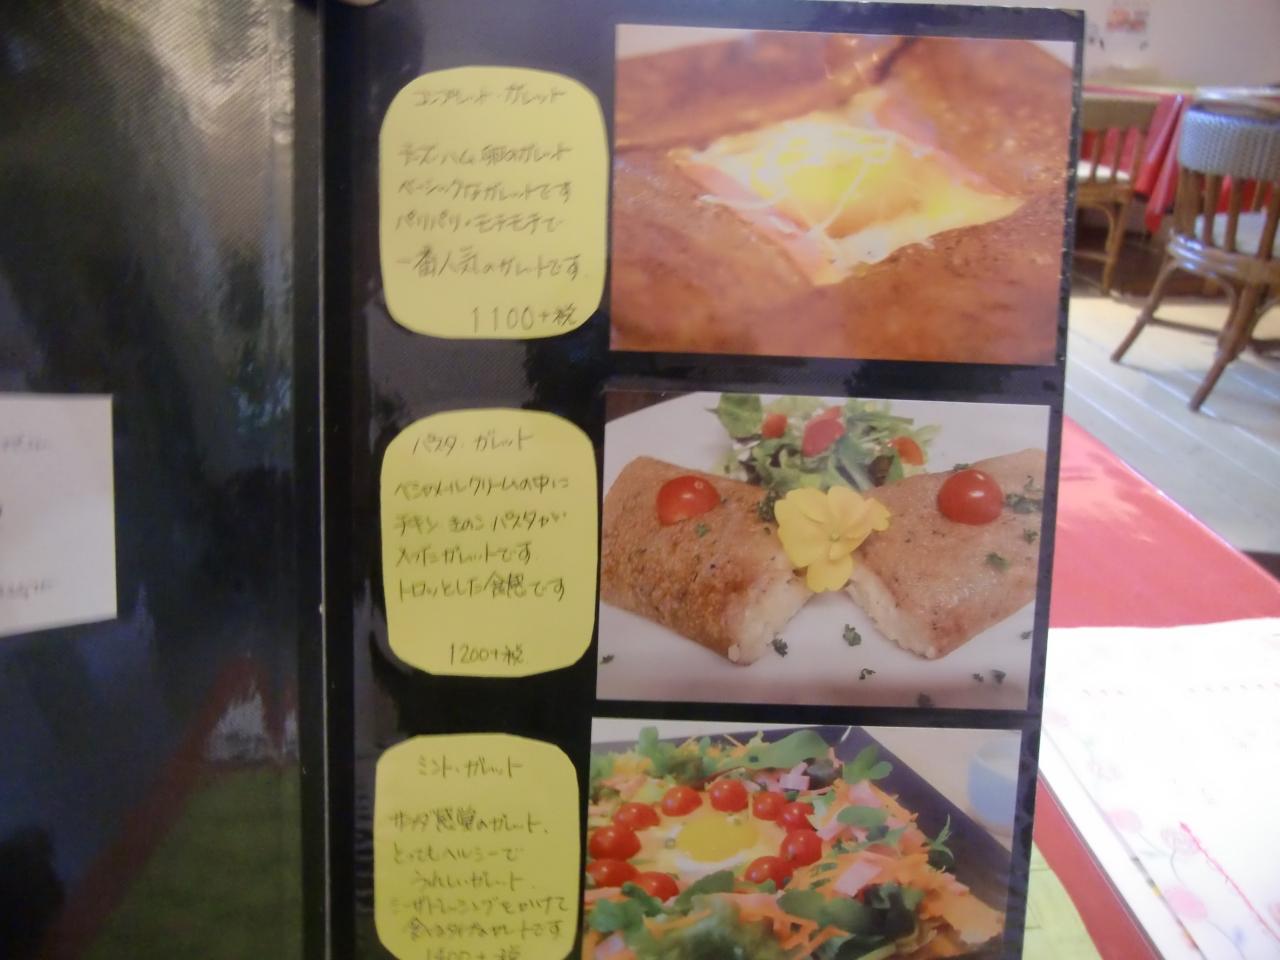 コンプレット・ガレット
チーズ・ハム・卵のガレット
ベーシックなガレットです
パリパリ・モチモチで
一番人気のガレットです。
1100+税
パスタ・ガレット
ベシャメールクリームの中に
チキン・きのこ パスタが
入ったガレットです。
トロッとした食感です
1200+税
ミント・ガレット
サラダ感覚のガレット、
とってもヘルシーで
うれしいガレット。
シーザードレッシングをかけて
食べるタイプなガレットです
+税